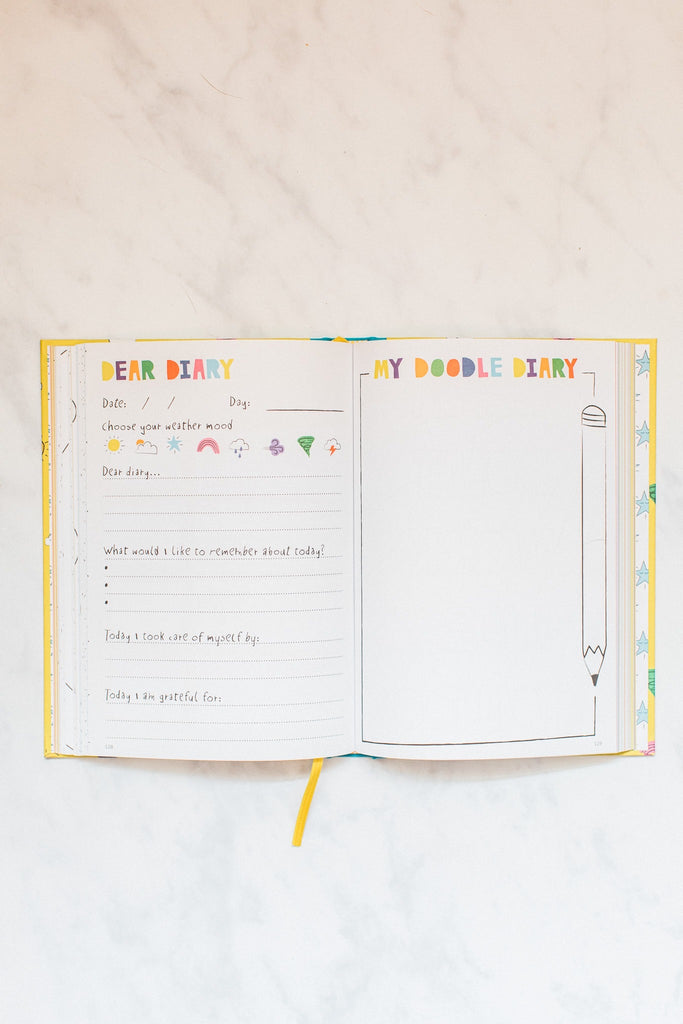 DEAR DIARY
Date: / / Day:
Choose your weather mood
Dear diary...
What would I like to remember about today?
Today I took care of myself by:
Today I am grateful for:
128
MY DOODLE DIARY